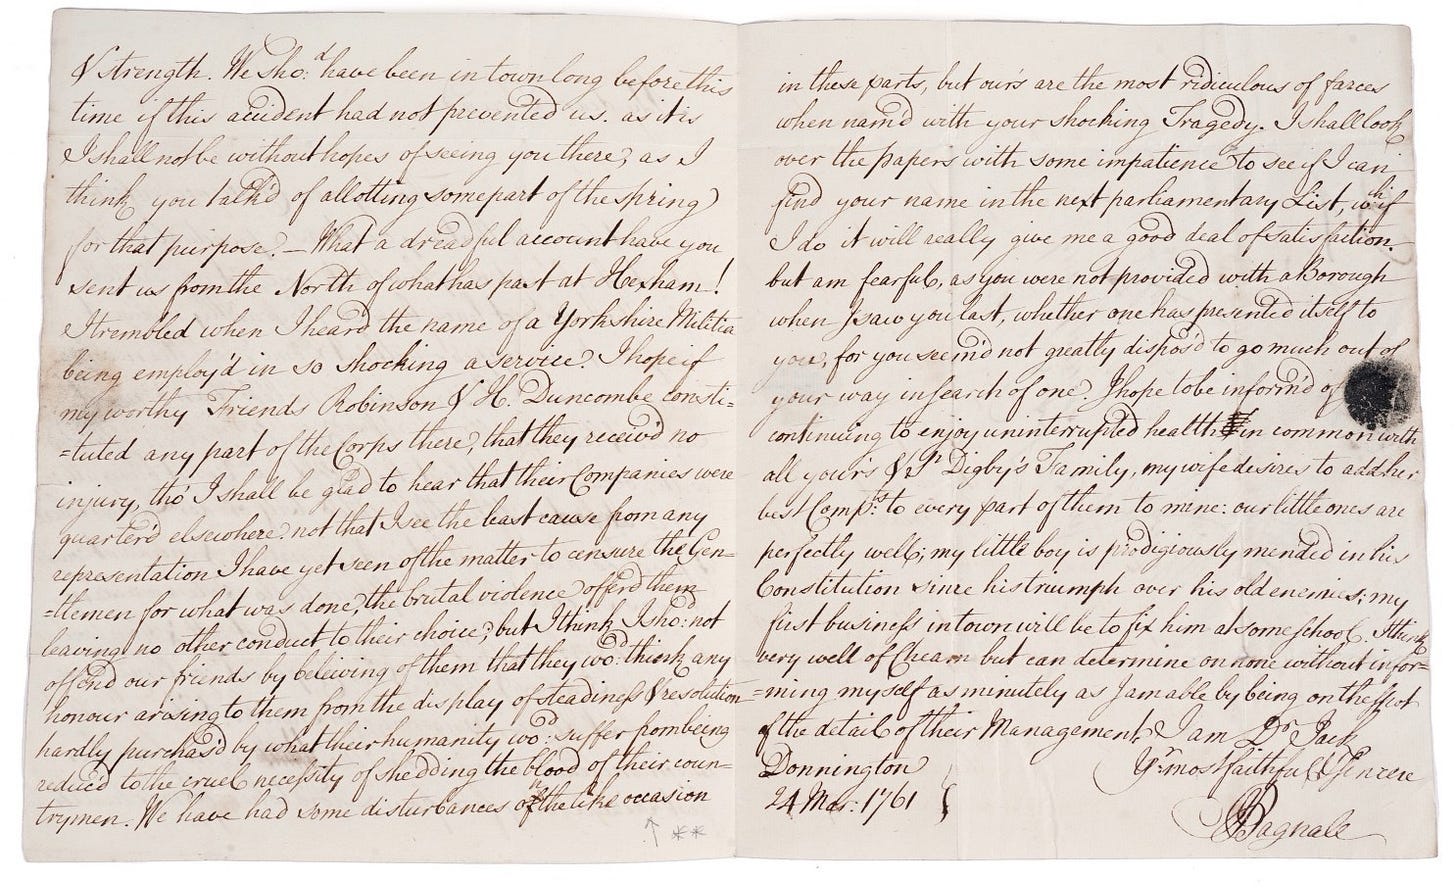 & strength. We sho:d have been in town long before this
time if this accident had not prevented us. as it is
I shall not be without hopes of seeing you there, as I
think you talk'd of allotting some part of the spring
for that purpose. — What a dreadful account have you
sent us from the North of what has past at Hexham!
I trembled when I heard the name of a Yorkshire Militia
being employ'd in so shocking a service. I hope if
my worthy Friends Robinson & H. Duncombe consti=
=tuted any part of the Corps there, that they receiv'd no
injury, tho' I shall be glad to hear that their Companies were
quarter'd elsewhere. not that I see the least cause from any
representation I have yet seen of the matter to censure the Gen=
=tlemen for what was done, the brutal violence offerd them
leaving no other conduct to their choice, but I think I sho:d not
offend our friends by believing of them that they wo:d think any
honour arising to them from the display of steadiness & resolution
hardly purchas'd by what their humanity wo:d suffer from being
reduced to the cruel necessity of shedding the blood of their coun=
trymen. We have had some disturbances on the like occasion
**
in these parts, but our's are the most ridiculous of farces
when nam'd with your shocking Tragedy. I shall look
over the papers with some impatience to see if I can
find your name in the next parliamentary List, wch if
I do it will really give me a good deal of satisfaction.
but am fearful, as you were not provided with a Borough
when I saw you last, whether one has presented itself to
you, for you seem'd not greatly dispos'd to go much out of
your way in search of one. I hope to be inform'd of
continuing to enjoy uninterrupted health in common with
all your's & Sr Digby's Family, my wife desires to add her
best Comp:ts to every part of them to mine: our little ones are
perfectly well; my little boy is prodigiously mended in his
Constitution since his triumph over his old enemies; my
first business in town will be to fix him at some school. I think
very well of Cheam but can determine on none without infor=
=ming myself as minutely as I am able by being on the spot
of the detail of their Management. I am Dr Jack
Donnington Yr most faithful & Sincere
24 Mar: 1761
Bagnall